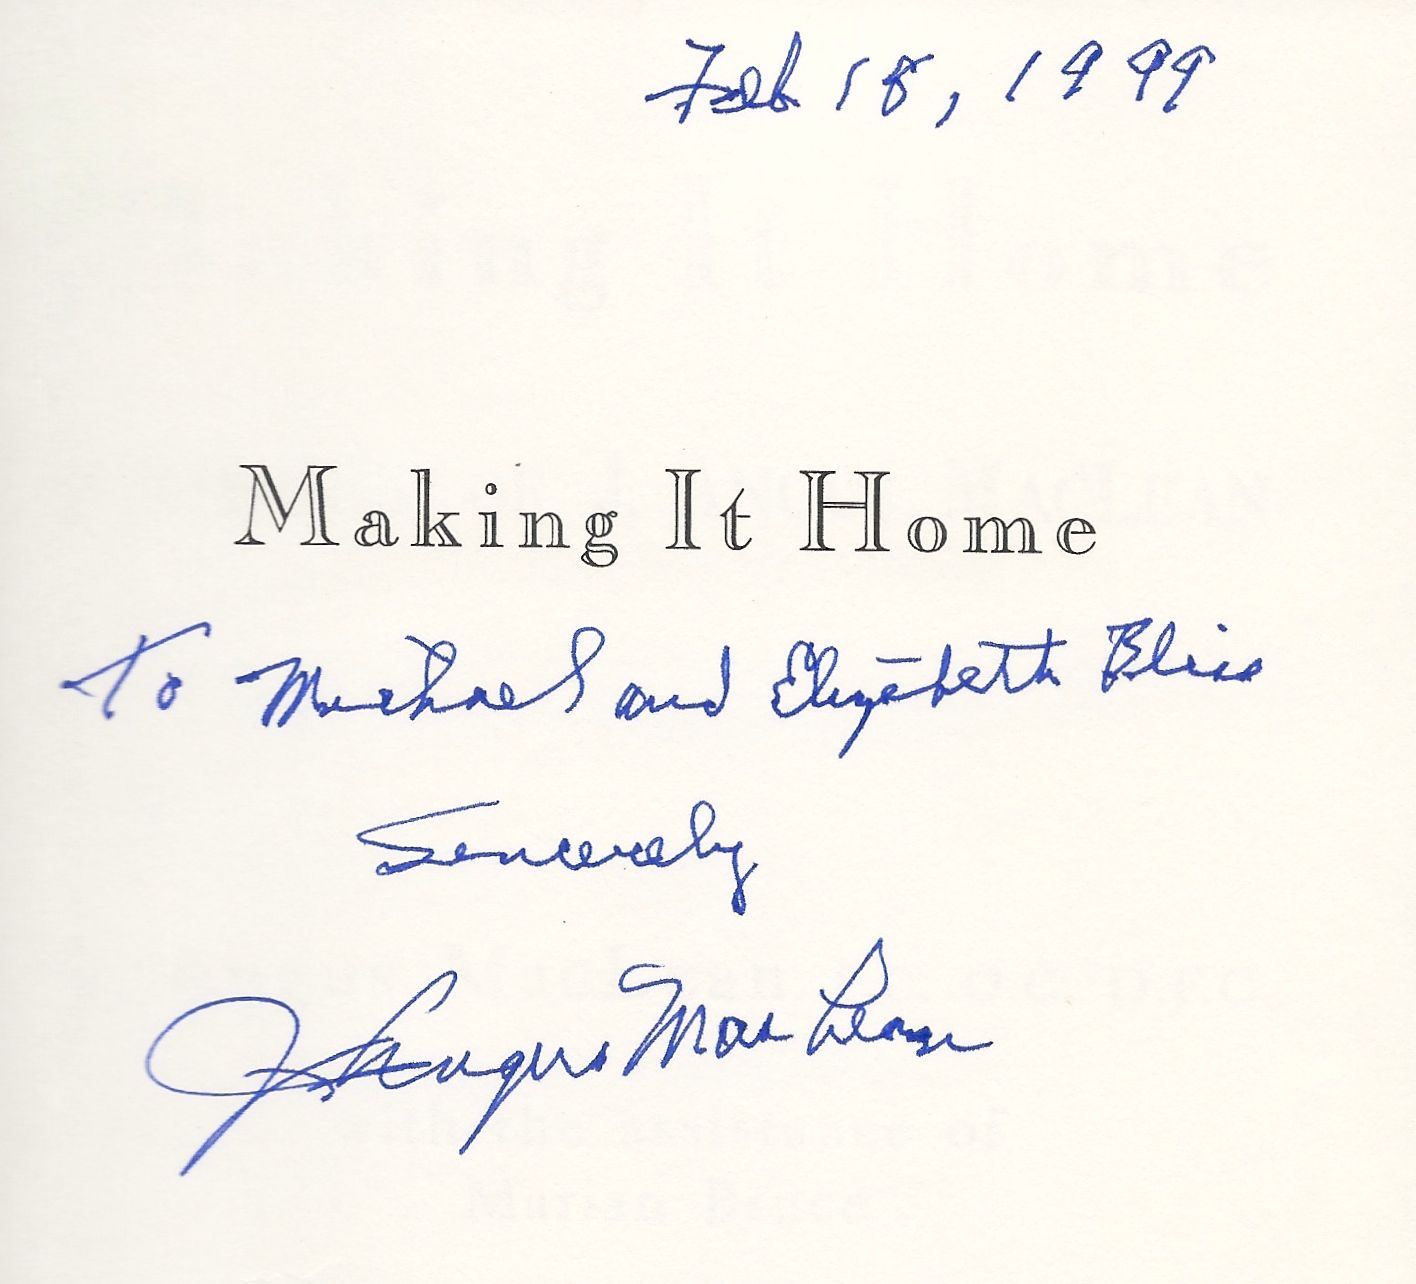 Feb 18, 1999
Making It Home
To Michael and Elizabeth Bliss
Sincerely
J. Angus MacLean